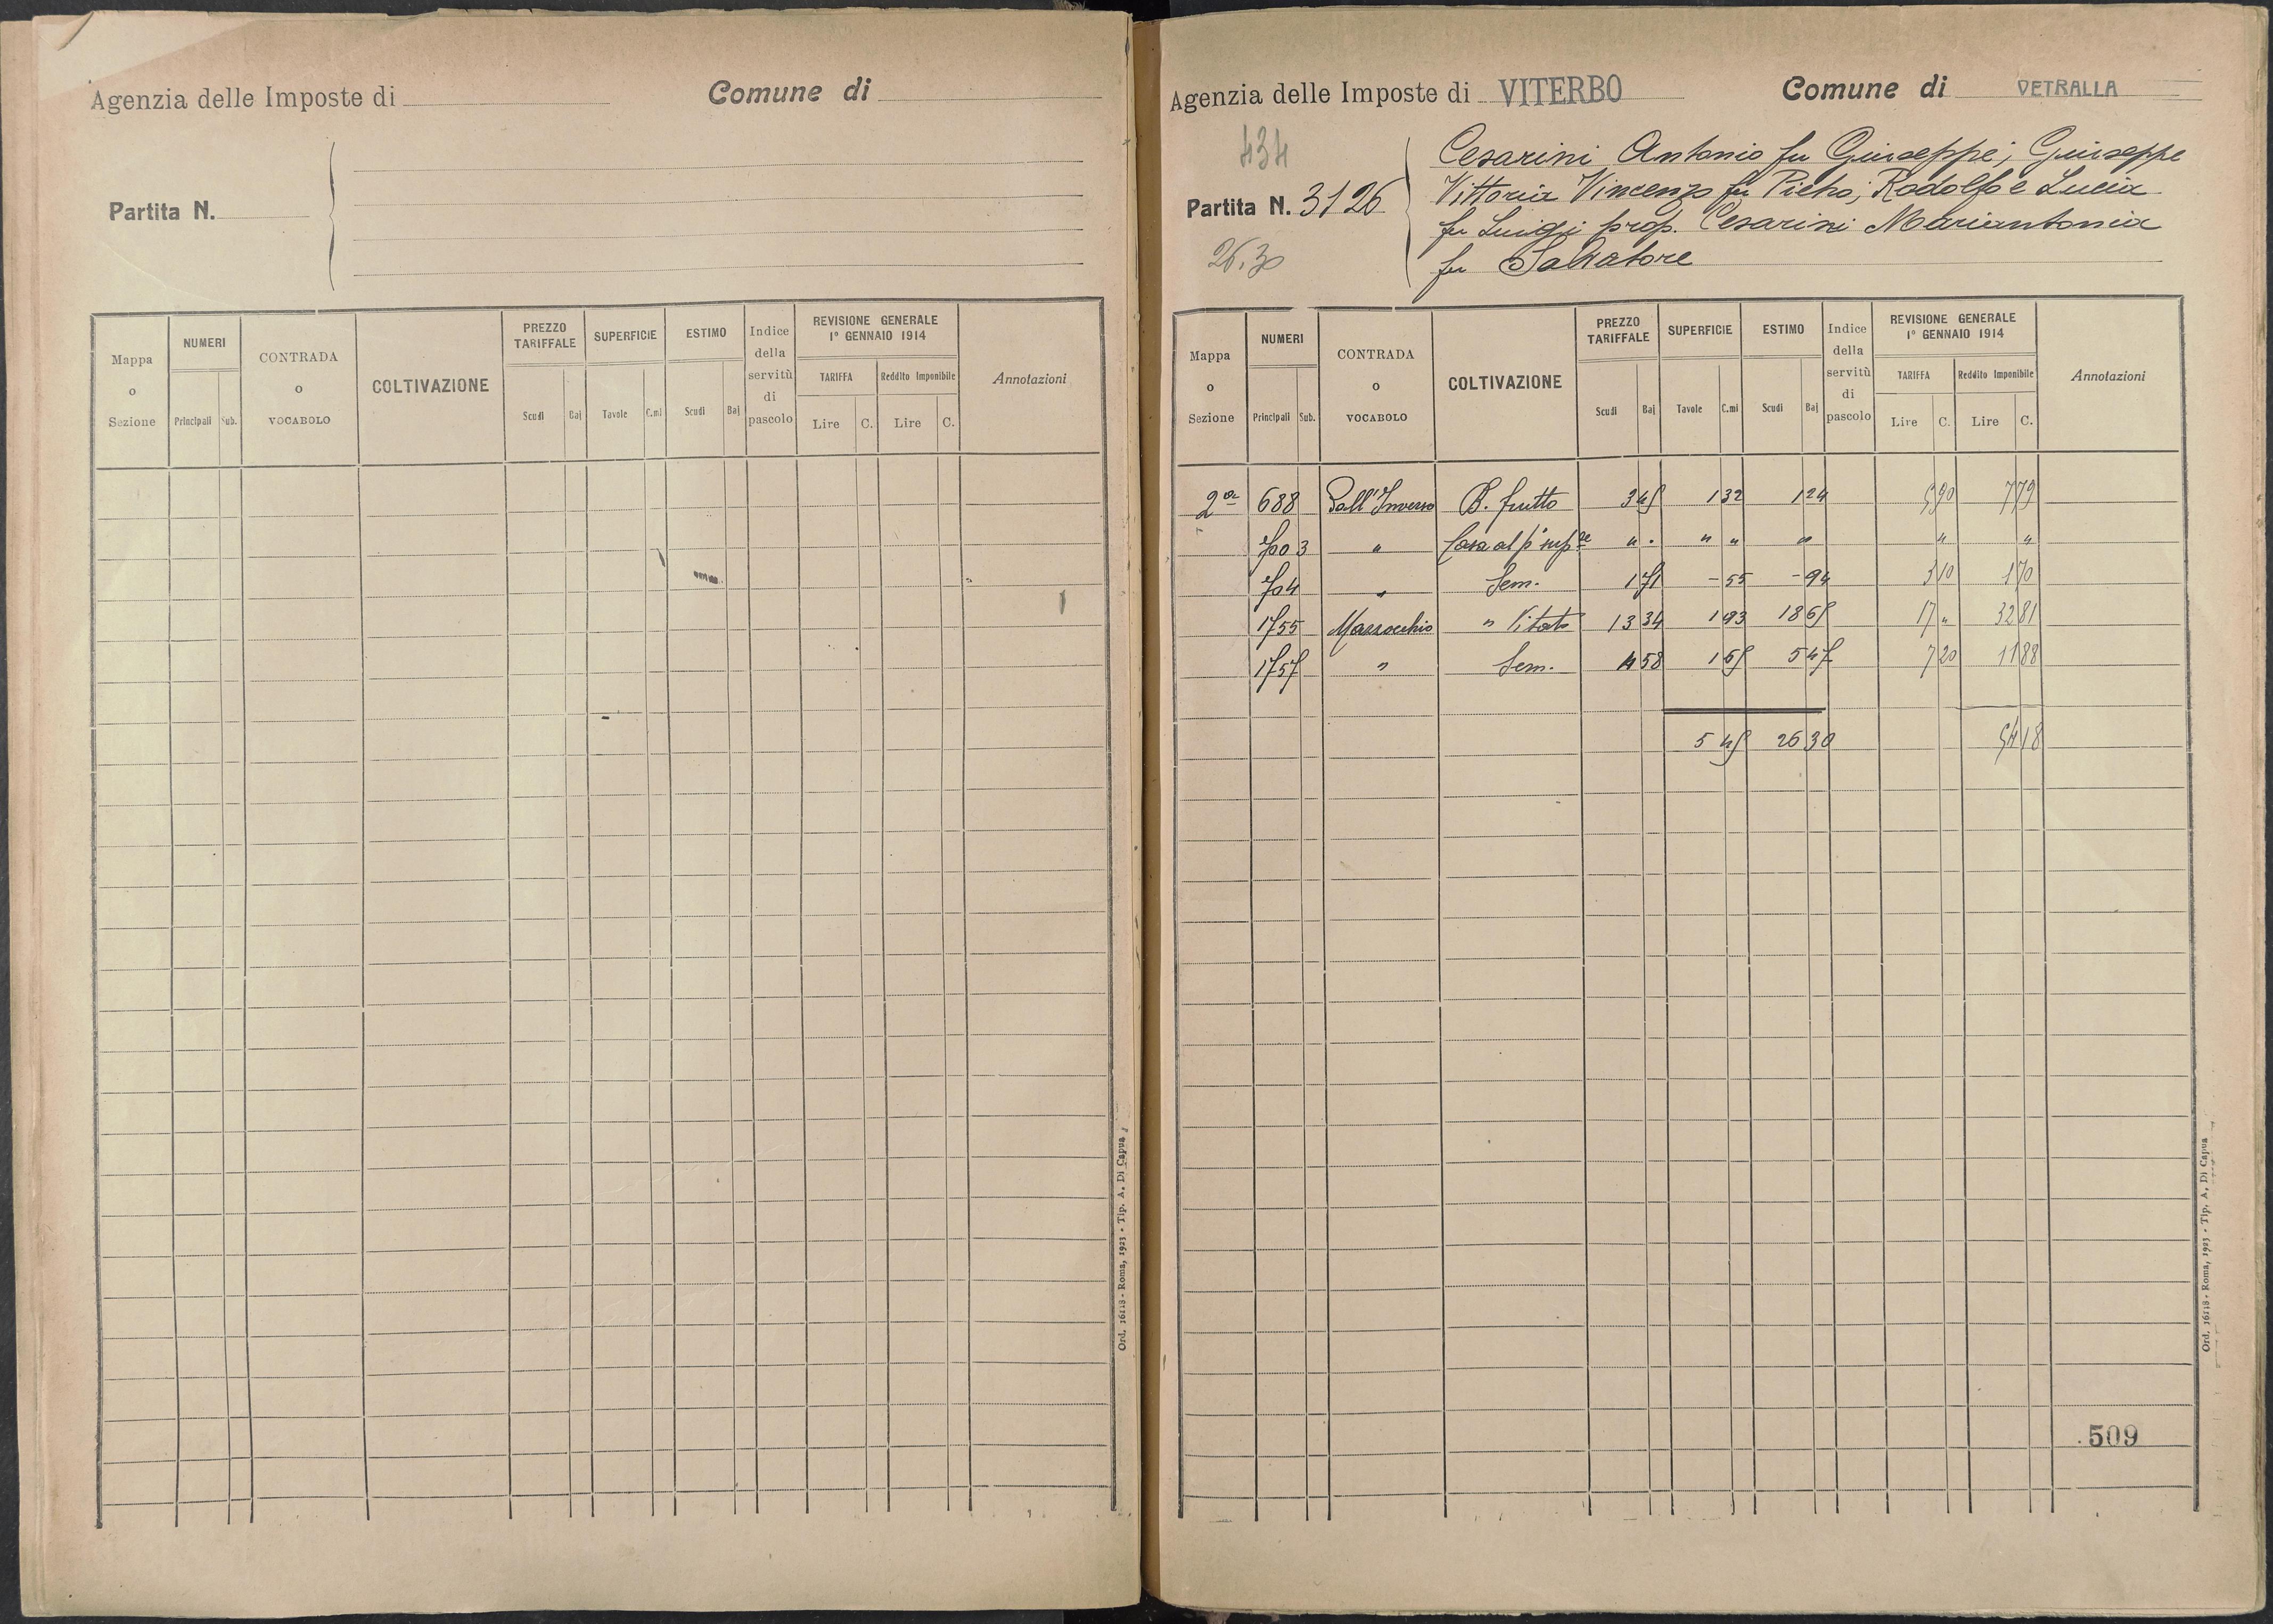 Agenzia delle Imposte di
Comune di
Partita N.
Mappa o Sezione
NUMERI
Principali Sub.
CONTRADA o VOCABOLO
COLTIVAZIONE
PREZZO TARIFFALE
Scudi Baj
SUPERFICIE
Tavole C.mi
ESTIMO
Scudi Baj
Indice della servitù di pascolo
REVISIONE GENERALE
1° GENNAIO 1914
TARIFFA Reddito Imponibile
Lire C. Lire C.
Annotazioni
Ord. 16118 - Roma, 1923 - Tip. A. Di Capua
Agenzia delle Imposte di VITERBO
Comune di VETRALLA
434
Partita N. 3126
26.30
Cesarini Antonio fu Giuseppe; Giuseppe
Vittoria Vincenzo fu Pietro; Rodolfo e Lucia
fu Luigi prop. Cesarini Mariantonia
fu Salvatore
Mappa o Sezione
NUMERI
Principali Sub.
CONTRADA o VOCABOLO
COLTIVAZIONE
PREZZO TARIFFALE
Scudi Baj
SUPERFICIE
Tavole C.mi
ESTIMO
Scudi Baj
Indice della servitù di pascolo
REVISIONE GENERALE
1° GENNAIO 1914
TARIFFA Reddito Imponibile
Lire C. Lire C.
Annotazioni
2a 688 B. frutto 1 32 1 24 5 90 7 79
703 " Casa " " " " "
704 " Sem. 1 71 - 55 - 94 3 10 1 70
1755 Mazzocchio " Vitato 13 34 1 93 17 " 32 81
1757 " Sem. 4 58 5 47 7 20 11 88
26 30 54 18
509
Ord. 16118 - Roma, 1923 - Tip. A. Di Capua